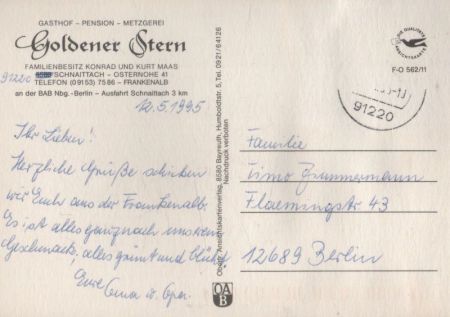 GASTHOF – PENSION – METZGEREI
Goldener Stern
FAMILIENBESITZ KONRAD UND KURT MAAS
91220 SCHNAITTACH – OSTERNOHE 41
TELEFON (09153) 7586 – FRANKENALB
an der BAB Nbg.-Berlin – Ausfahrt Schnaittach 3 km
12.5.1995
Ihr Lieben!
Herzliche Grüße schicken
wir Euch aus der Frankenalb.
Es ist alles ganz nach unserem
Geschmack, alles grünt und blüht.
Eure
Oma u. Opa.
Oberpf. Ansichtskartenverlag, 8580 Bayreuth, Humboldtstr. 5, Tel. 0921/64126
Nachdruck verboten
OA
B
DIE QUALITÄTS
ANSICHTSKARTE
F-O 562/11
91220
Familie
Timo Zimmermann
Flaemingstr. 43
12689 Berlin